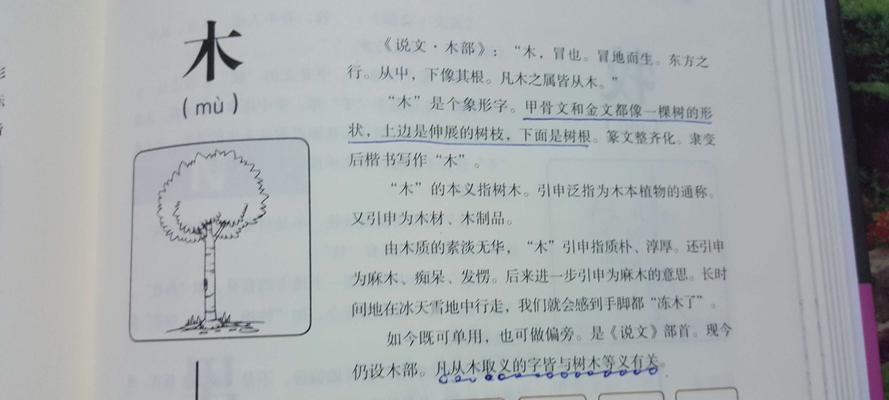 木
(mù)
《说文·木部》：“木，冒也。冒地而生。东方之
行。从屮，下像其根。凡木之属皆从木。”
“木”是个象形字。甲骨文和金文都像一棵树的形
状，上边是伸展的树枝，下面是树根。篆文整齐化。隶变
后楷书写作“木”。
“木”的本义指树木。引申泛指为木本植物的通称。
又引申为木材、木制品。
由木质的素淡无华，“木”引申指质朴、淳厚。还引申
为麻木、痴呆、发愣。后来进一步引申为麻木的意思。长时
间地在冰天雪地中行走，我们就会感到手脚都“冻木了”。
如今既可单用，也可做偏旁。是《说文》部首。现今
仍设木部。凡从木取义的字皆与树木等义有关。